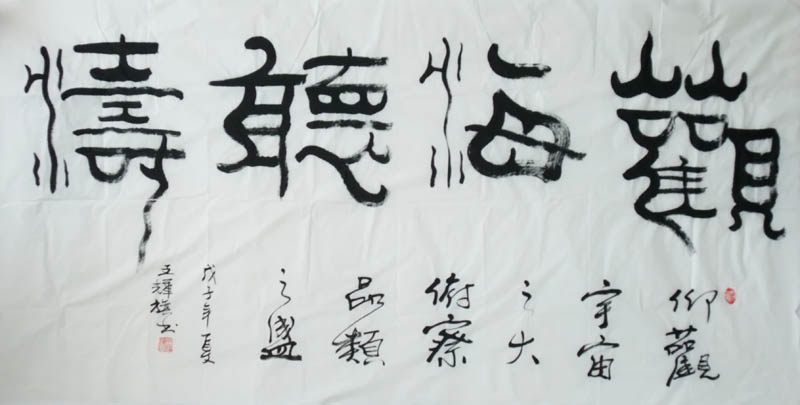 觀海聽濤
仰觀
宇宙
之大
俯察
品類
之盛
戊子年夏
王輝书